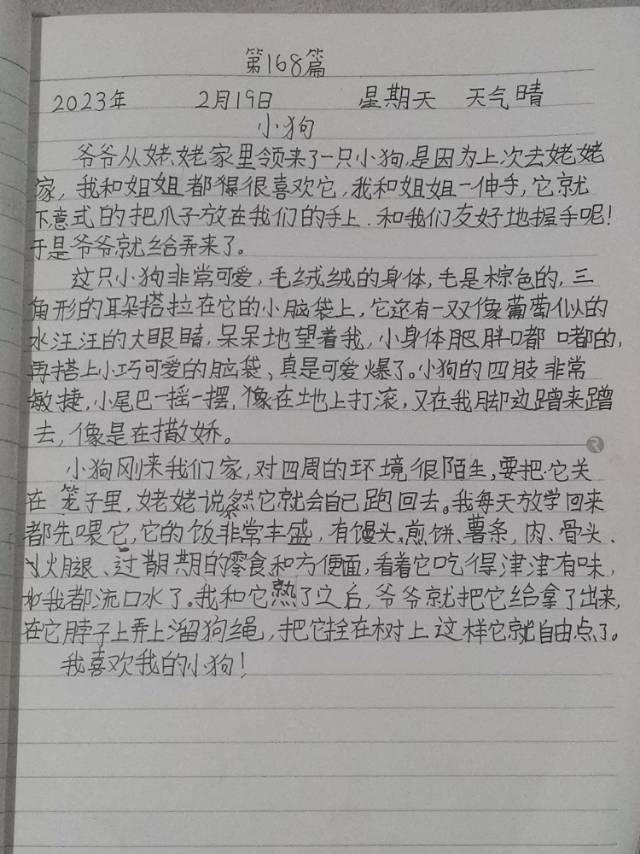 第168篇
2023年 2月19日 星期天 天气晴
小狗
爷爷从姥姥家里领来了一只小狗,是因为上次去姥姥
家,我和姐姐都很喜欢它,我和姐姐一伸手,它就
下意式的把爪子放在我们的手上.和我们友好地握手呢!
于是爷爷就给弄来了。
这只小狗非常可爱,毛绒绒的身体,毛是棕色的,三
角形的耳朵搭拉在它的小脑袋上,它还有一双像葡萄似的
水汪汪的大眼睛,呆呆地望着我,小身体肥胖嘟嘟的,
再搭上小巧可爱的脑袋、真是可爱爆了。小狗的四肢非常
敏捷,小尾巴一摇一摆,像在地上打滚,又在我脚边蹭来蹭
去,像是在撒娇。
2
小狗刚来我们家,对四周的环境很陌生,要把它关
在笼子里,姥姥说然它就会自己跑回去。我每天放学回来
都先喂它,它的饭非常丰盛,有馒头、煎饼、薯条,肉、骨头、
火腿、过期的零食和方便面,看着它吃得津津有味,
我都流口水了。我和它熟了之后,爷爷就把它给拿了出来,
在它脖子上弄上溜狗绳,把它拴在树上这样它就自由点了。
我喜欢我的小狗!